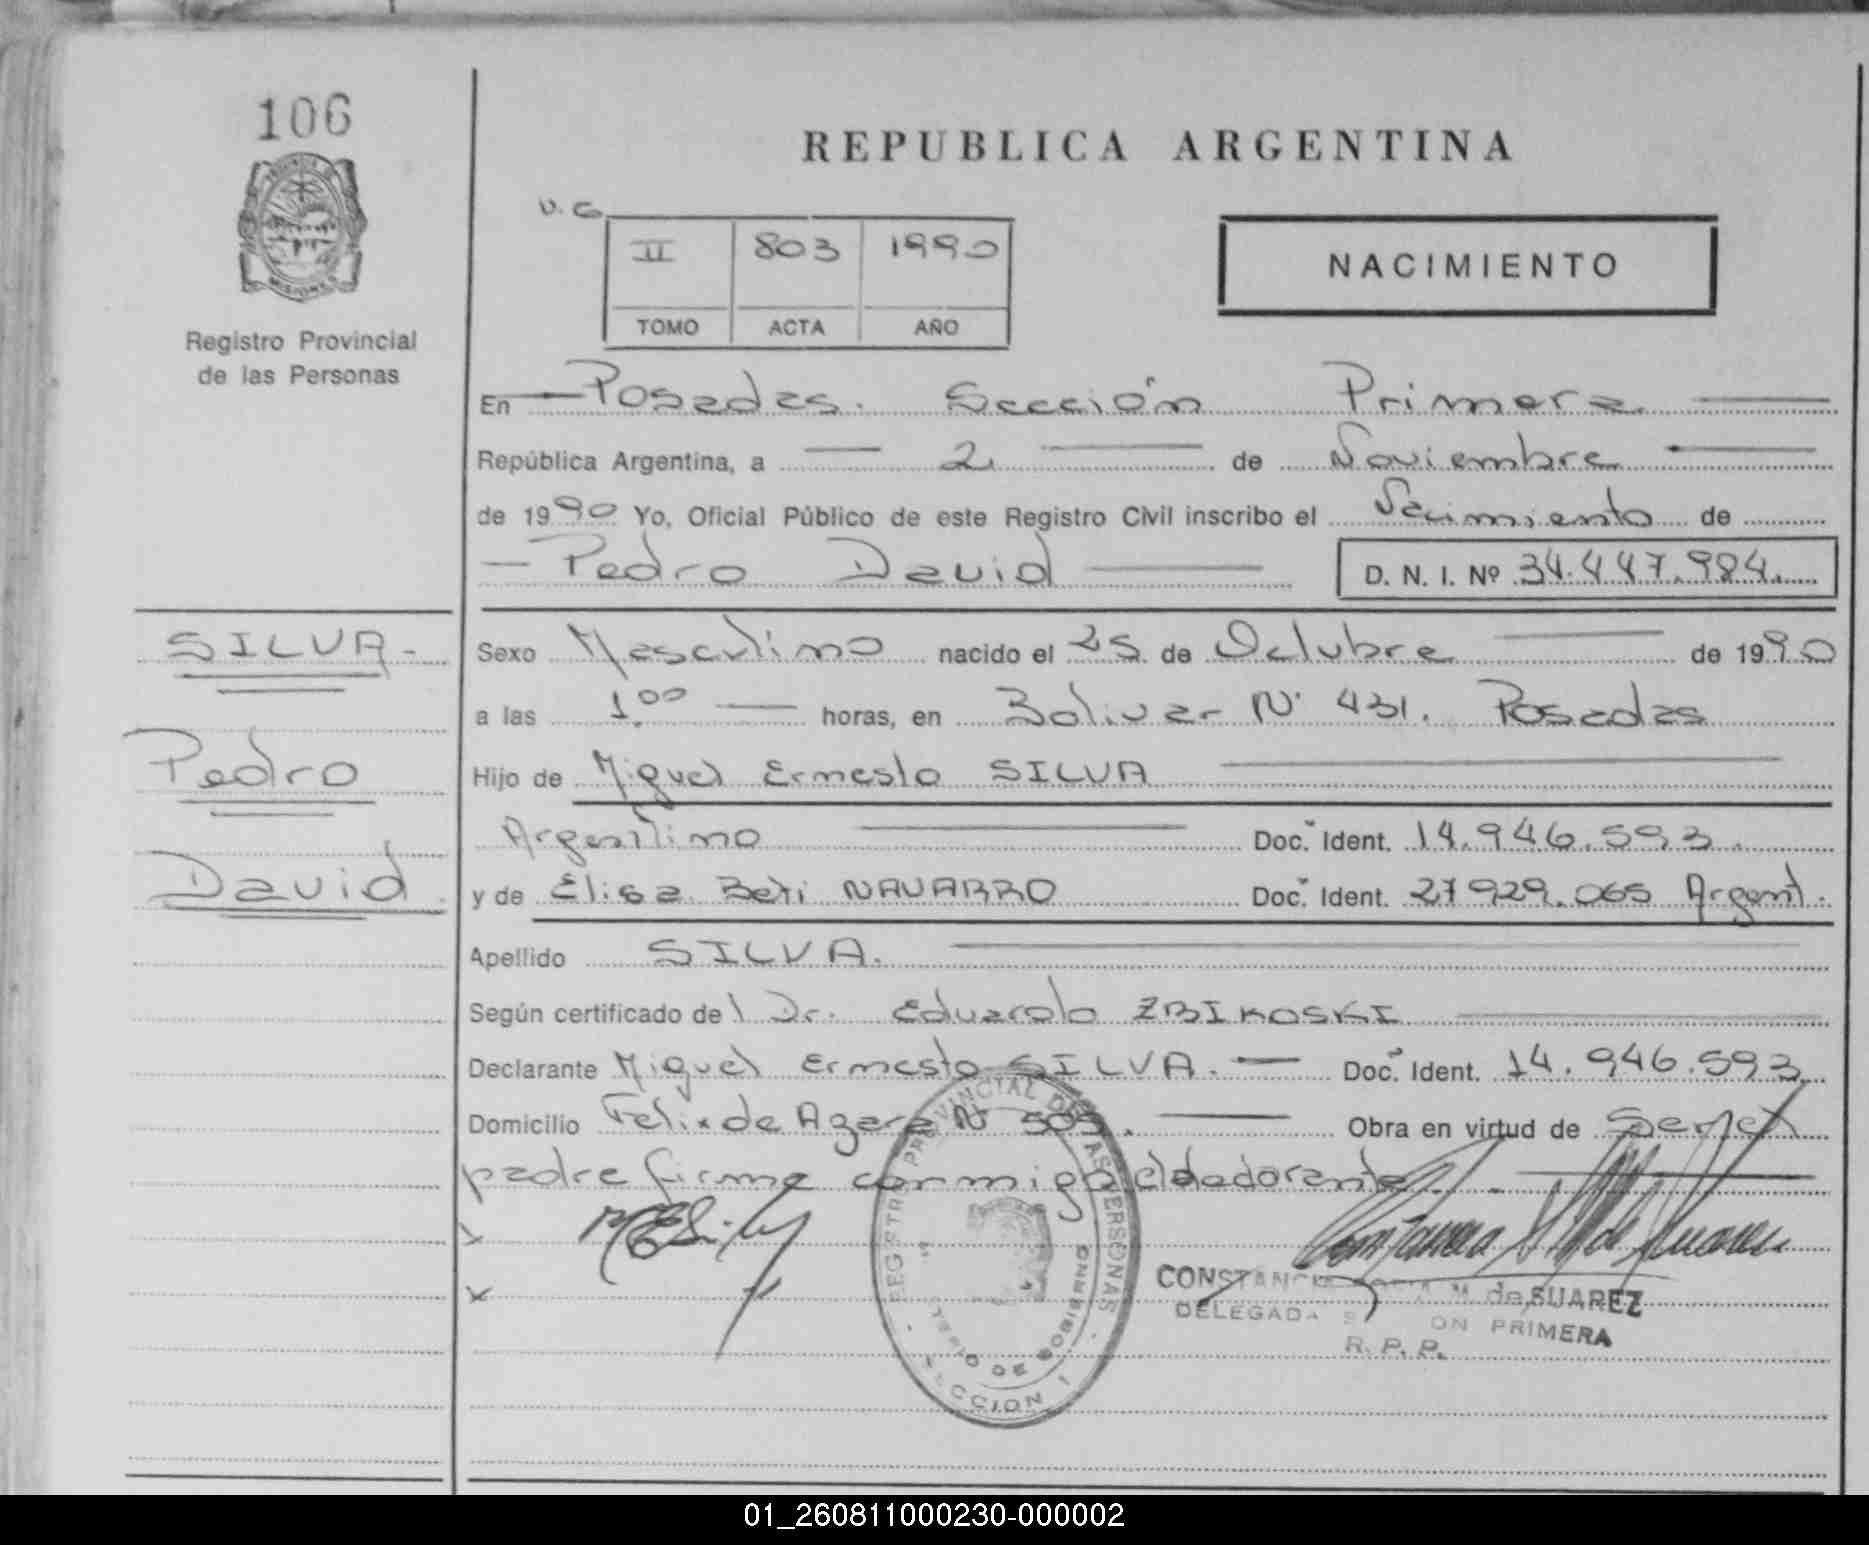 106
REPUBLICA ARGENTINA
V. C.
II 803 1990
TOMO ACTA AÑO
NACIMIENTO
PROVINCIA DE
MISIONES
Registro Provincial
de las Personas
En Posadas. Sección Primera
República Argentina, a 2 de Noviembre
de 1990 Yo, Oficial Público de este Registro Civil inscribo el Nacimiento de
Pedro David D. N. I. Nº 34.447.984.
SILVA.
Pedro
David.
Sexo Masculino nacido el 25 de Octubre de 1990
a las 1.00 horas, en Bolivar Nº 431. Posadas
Hijo de Miguel Ernesto SILVA
Argentino Doc. Ident. 14.946.593.
y de Elisa Beti NAVARRO Doc. Ident. 27 929.065 Argent.
Apellido SILVA.
Según certificado del Dr. Eduardo ZBIKOSKI
Declarante Miguel Ernesto SILVA. Doc. Ident. 14.946.593
Domicilio Felix de Azara Nº 509. Obra en virtud de Ser el
padre firma conmigo el declarante.
REGISTRO PROVINCIAL DE LAS PERSONAS
DE GOBIERNO
SECCION 1
CONSTANCIA M. de SUAREZ
DELEGADA PRIMERA
R. P. P.
01_260811000230-000002